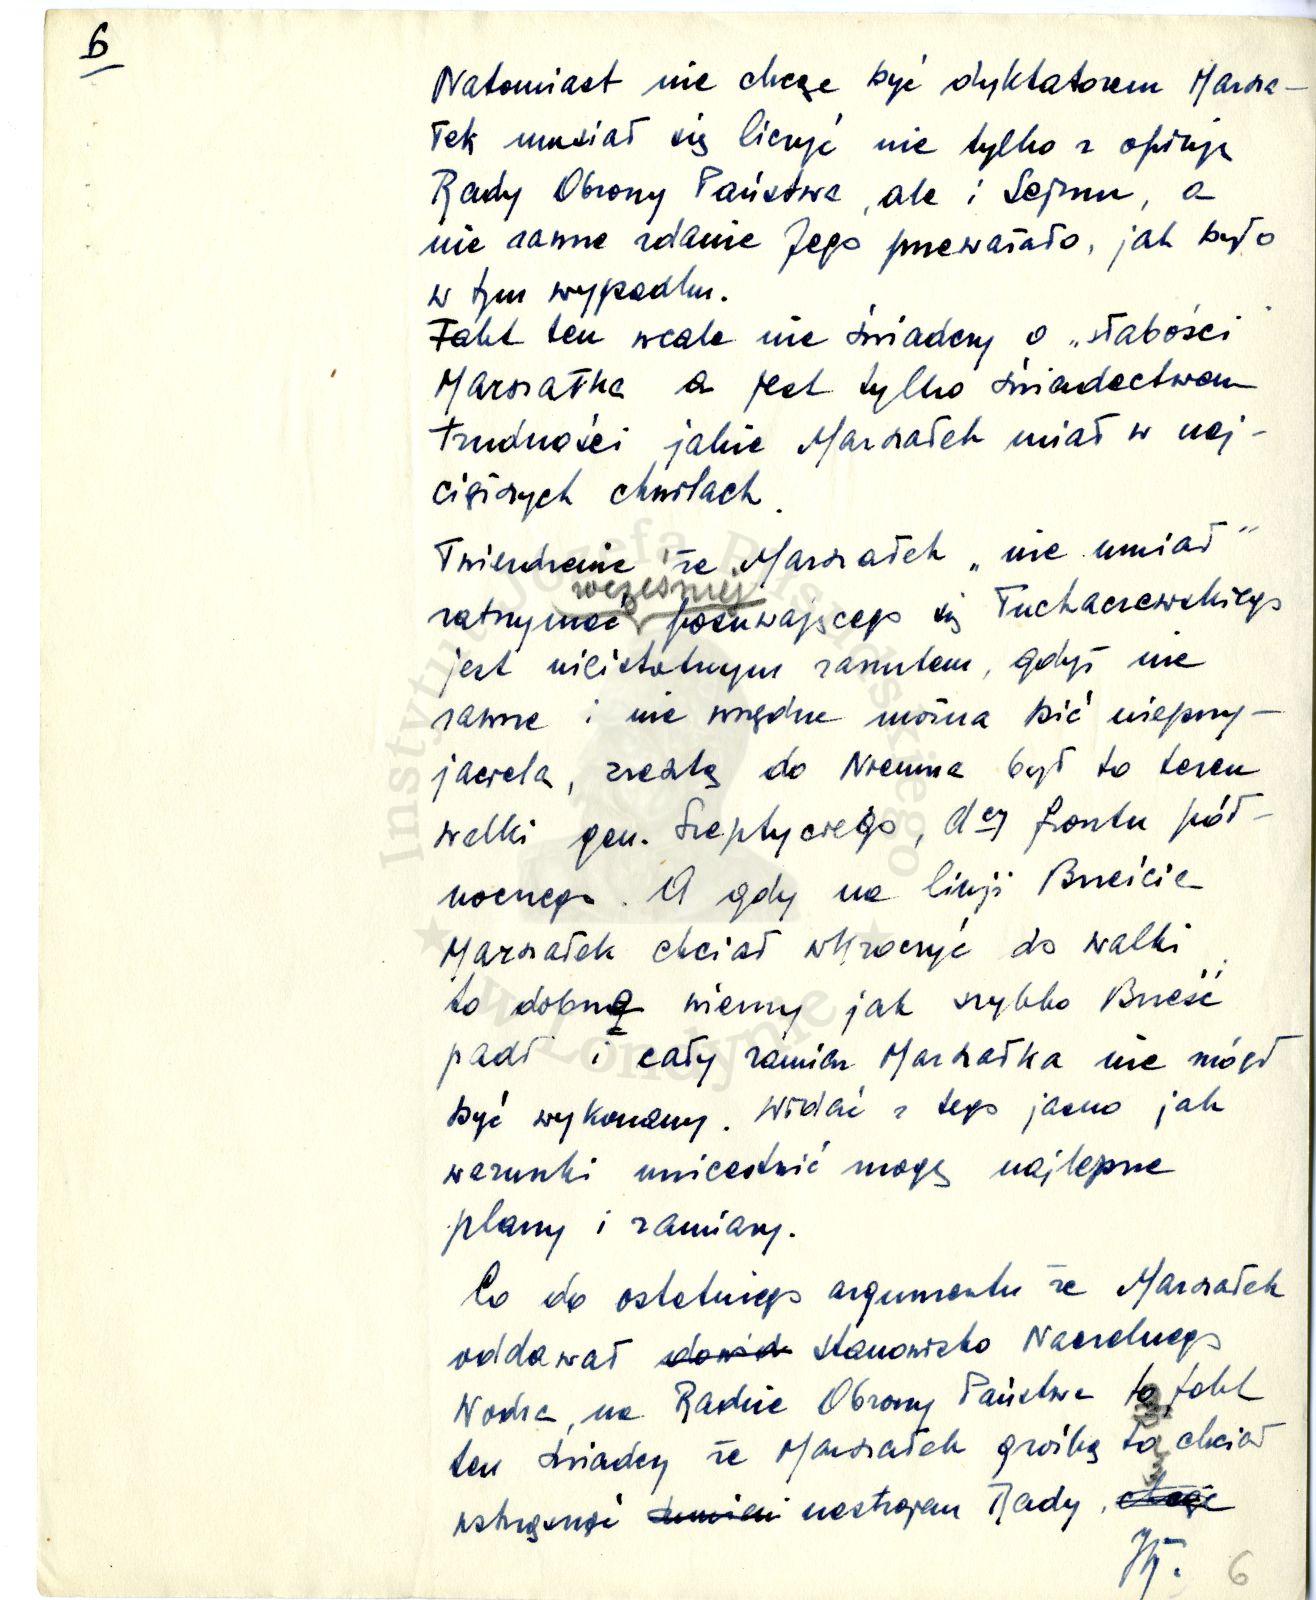 6
Natomiast nie chcąc być dyktatorem Marsza-
łek musiał się liczyć nie tylko z opinją
Rady Obrony Państwa, ale i Sejmu, a
nie zawsze zdanie Jego przeważało, jak było
w tym wypadku.
Fakt ten wcale nie świadczy o „słabości"
Marszałka a jest tylko świadectwem
trudności jakie Marszałek miał w naj-
cięższych chwilach.
Twierdzenie że Marszałek „nie umiał"
wcześniej
zatrzymać posuwającego się Tuchaczewskiego
jest nieistotnym zarzutem, gdyż nie
zawsze i nie wszędzie można bić nieprzy-
jaciela, zresztą do Niemna był to teren
walki gen. Szeptyckiego, dcy frontu pół-
nocnego. A gdy na linji Brześcia
Marszałek chciał wkroczyć do walki
to dobrze wiemy jak szybko Brześć
padł i cały zamiar Marszałka nie mógł
być wykonany. Widać z tego jasno jak
warunki unicestwić mogą najlepsze
plany i zamiary.
Co do ostatniego argumentu że Marszałek
oddawał stanowisko Naczelnego
Wodza, na Radzie Obrony Państwa to fakt
ten świadczy że Marszałek groźbą tą chciał
wstrząsnąć nastrojem Rady,
6
Instytut Józefa Piłsudskiego
w Londynie